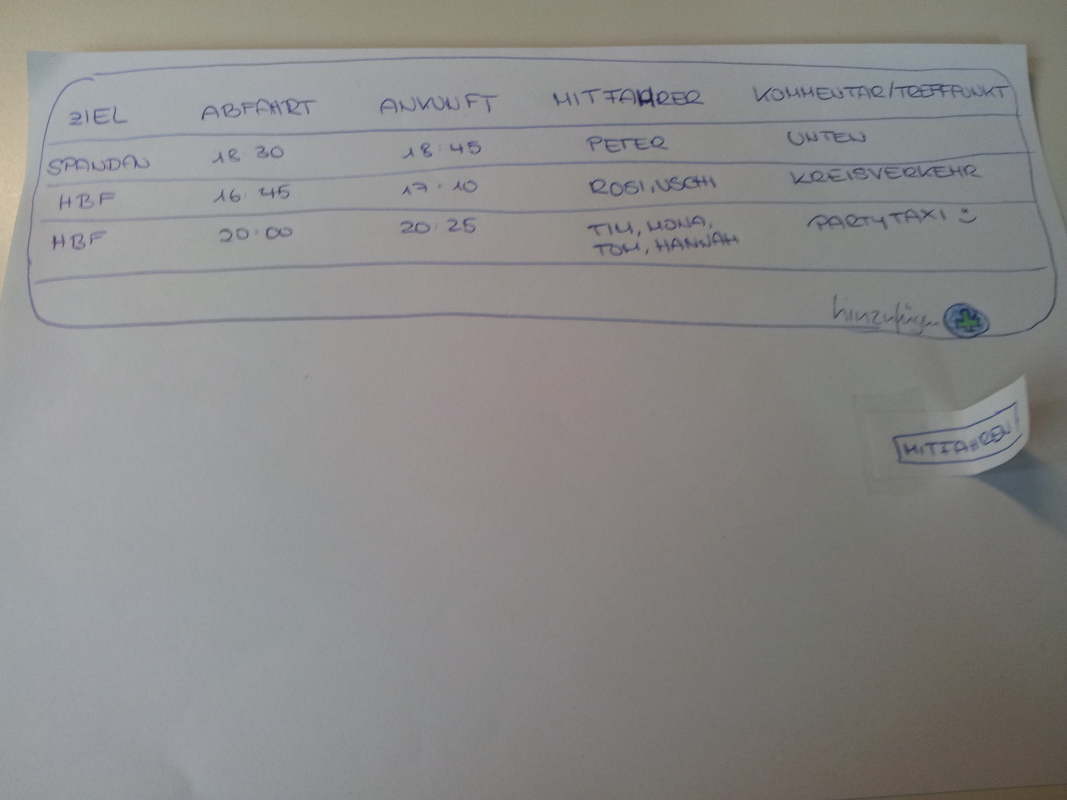 ZIEL ABFAHRT ANKUNFT MITFAHRER KOMMENTAR/TREFFPUNKT
SPANDAU 18:30 18:45 PETER UNTEN
HBF 16:45 17:10 ROSI, USCHI KREISVERKEHR
HBF 20:00 20:25 TIM, MONA, PARTYTAXI :)
TOM, HANNAH
hinzufügen
MITFAHREN